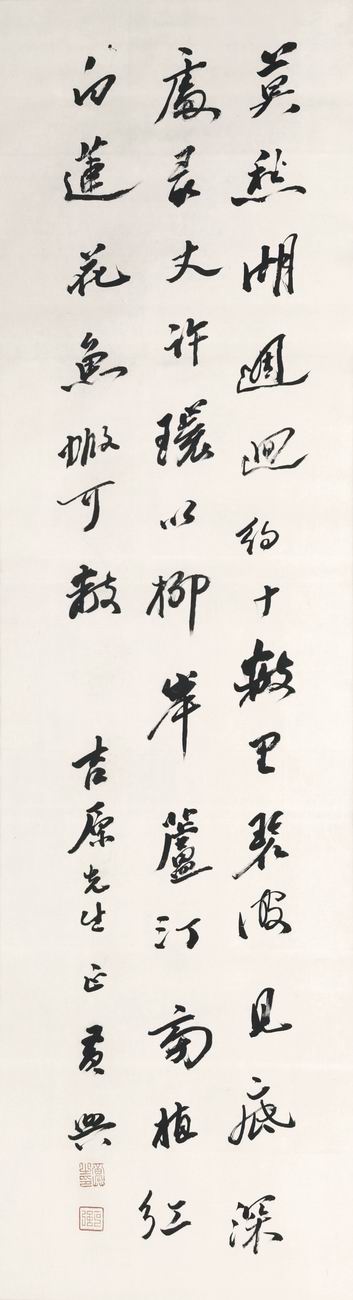 莫愁湖週迴約十数里碧波見底深
處尋丈許環以柳岸蘆汀蒔植紅
白蓮花魚蝦可数
吉原先生正 黄興